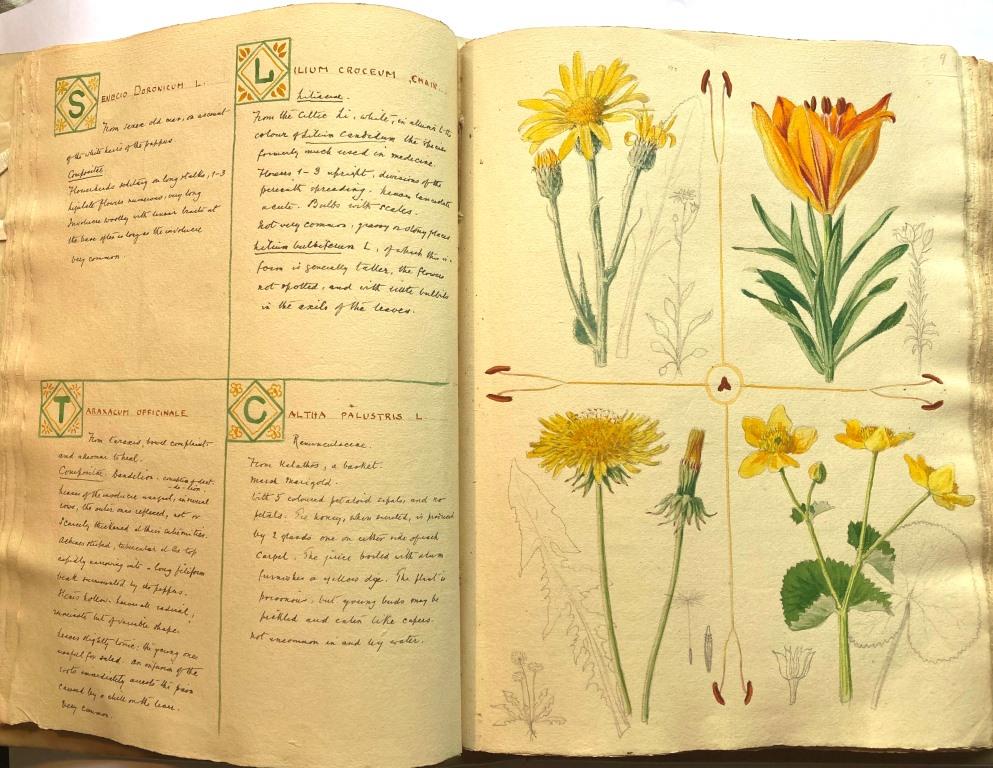 SENECIO DORONICUM L.
From senex old man, on account
of the white hairs of the pappus
Compositae
Flowerheads solitary on long stalks, 1-3
ligulate flowers numerous, very long
Involucre woolly with linear bracts at
the base often as long as the involucre
Very common.
LILIUM CROCEUM CHAIX.
Liliaceae.
From the Celtic Li, white, in allusion to the
colour of Lilium candidum the species
formerly much used in medicine.
Flowers 1-3 upright, divisions of the
perianth spreading. Leaves lanceolate
acute. Bulbs with scales.
Not very common, grassy or stony places
Lilium bulbiferum L, of which this is
form is generally taller, the flowers
not spotted, and with little bulbils
in the axils of the leaves.
TARAXACUM OFFICINALE
From taraxis, bowel complaints
and akeomai to heal.
Compositae. Dandelion
leaves of the involucre unequal, in several
rows, the outer ones reflexed, not or
scarcely thickened at their extremities.
Achenes striped, tubercular at the top
rapidly narrowing into a long filiform
beak surmounted by the pappus.
Stems hollow. Leaves all radical,
runcinate but of variable shape.
Leaves slightly tonic: the young ones
useful for salad. An infusion of the
roots immediately arrests the pain
caused by a chill on the liver.
Very common.
CALTHA PALUSTRIS L
Renunculaceae.
From Kalathos, a basket.
Marsh Marigold.
With 5 coloured petaloid sepals, and no
petals. The honey, when secreted, is produced
by 2 glands one on either side of each
carpel. The juice boiled with alum
furnishes a yellow dye. The plant is
poisonous, but young buds may be
pickled and eaten like capers.
Not uncommon in and by water.
9